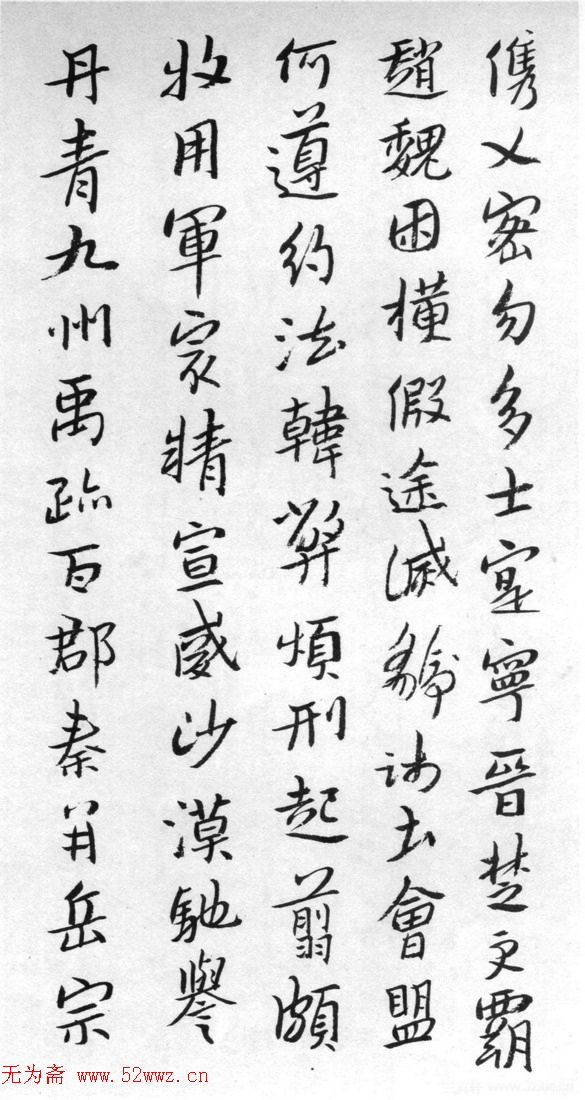 俊乂密勿多士寔寧晉楚更霸
趙魏困橫假途滅虢踐土會盟
何遵約法韓弊煩刑起翦頗
牧用軍最精宣威沙漠馳譽
丹青九州禹跡百郡秦并岳宗
无为斋 www.52wwz.cn